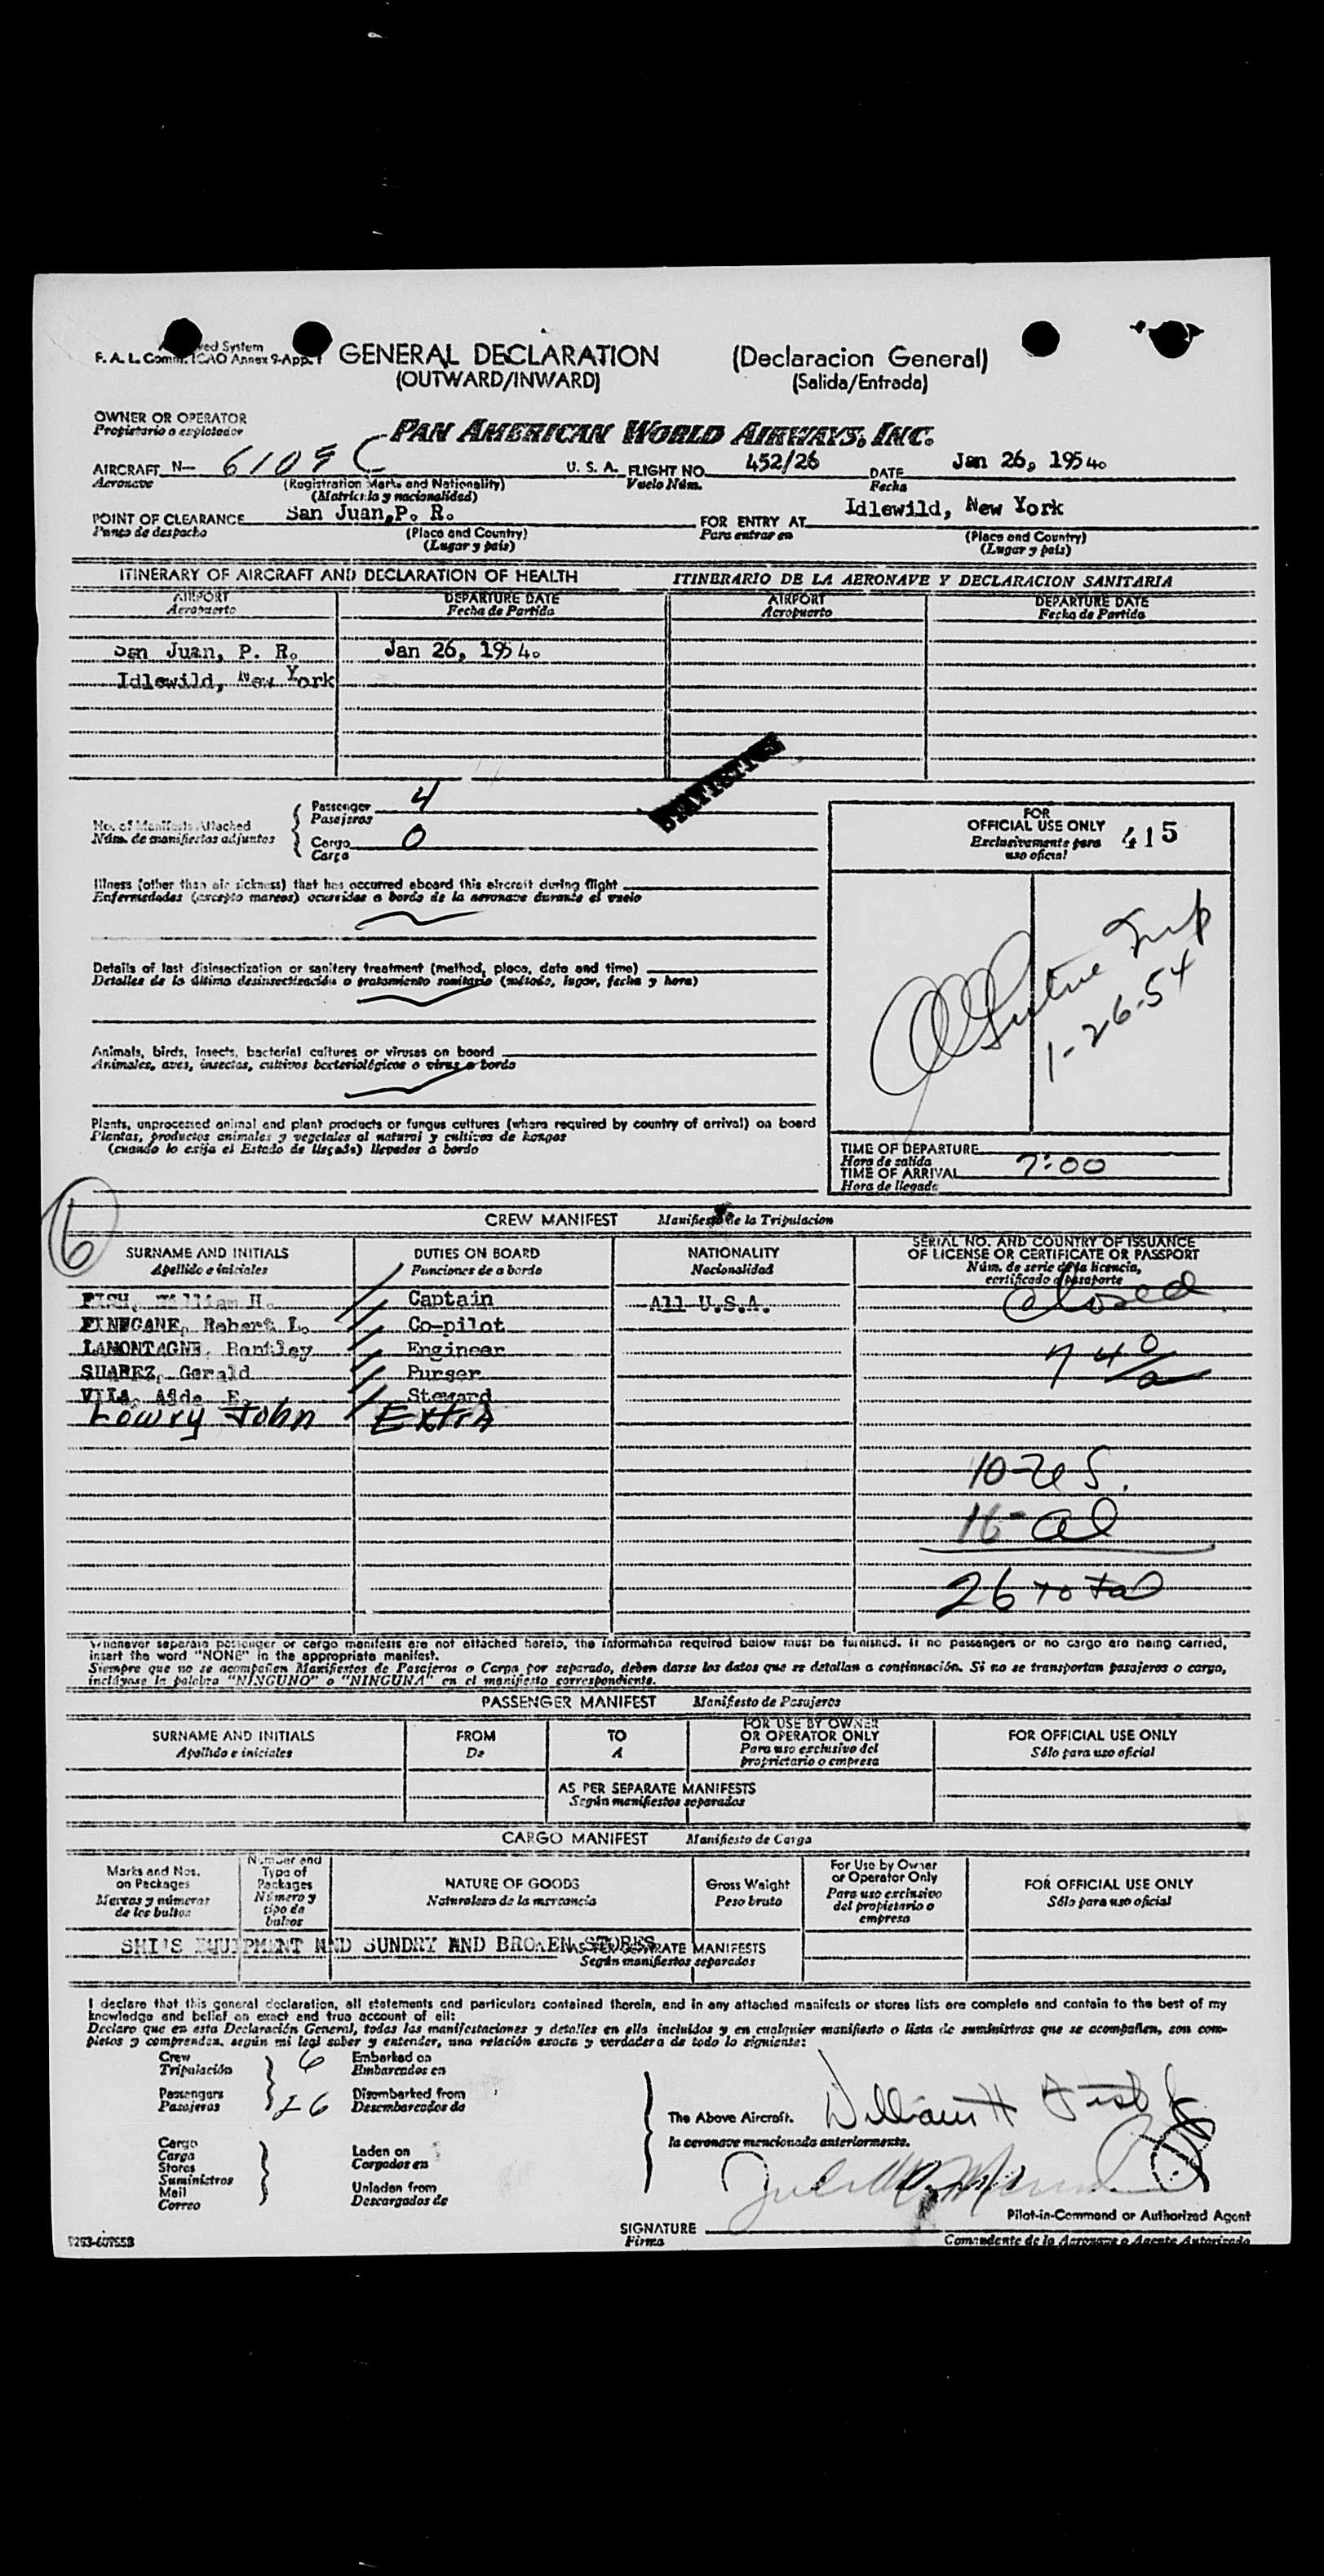 F. A. L. Comm. ICAO Annex 9-App. 1
GENERAL DECLARATION
(Declaracion General)
(OUTWARD/INWARD)
(Salida/Entrada)
OWNER OR OPERATOR
Propietario o explotador
PAN AMERICAN WORLD AIRWAYS, INC.
AIRCRAFT N— U. S. A. FLIGHT NO. 452/26 DATE Jan 26, 1954.
Aeronave (Registration Marks and Nationality) Vuelo Núm. Fecha
(Matricula y nacionalidad)
POINT OF CLEARANCE San Juan, P. R. FOR ENTRY AT Idlewild, New York
Punto de despacho (Place and Country) Para entrar en (Place and Country)
(Lugar y pais) (Lugar y pais)
ITINERARY OF AIRCRAFT AND DECLARATION OF HEALTH ITINERARIO DE LA AERONAVE Y DECLARACION SANITARIA
AIRPORT DEPARTURE DATE AIRPORT DEPARTURE DATE
Aeropuerto Fecha de Partida Aeropuerto Fecha de Partida
San Juan, P. R. Jan 26, 1954.
Idlewild, New York
STATISTICS
No. of Manifests Attached
Núm. de manifiestos adjuntos
Passenger 4
Pasajeros
Cargo 0
Carga
FOR
OFFICIAL USE ONLY 415
Exclusivamente para
uso oficial
Illness (other than air sickness) that has occurred aboard this aircraft during flight
Enfermedades (excepto mareos) ocurridas a bordo de la aeronave durante el vuelo
Details of last disinsectization or sanitary treatment (method, place, date and time)
Detalles de la última desinsectización o tratamiento sanitario (método, lugar, fecha y hora)
1-26-54
Animals, birds, insects, bacterial cultures or viruses on board
Animales, aves, insectos, cultivos bacteriológicos o virus a bordo
Plants, unprocessed animal and plant products or fungus cultures (where required by country of arrival) on board
Plantas, productos animales y vegetales al natural y cultivos de hongos
(cuando lo exija el Estado de llegada) llevados a bordo
TIME OF DEPARTURE
Hora de salida 7:00
TIME OF ARRIVAL
Hora de llegada
6
CREW MANIFEST Manifiesto de la Tripulacion
SURNAME AND INITIALS DUTIES ON BOARD NATIONALITY SERIAL NO. AND COUNTRY OF ISSUANCE
OF LICENSE OR CERTIFICATE OR PASSPORT
Apellido e iniciales Funciones de a bordo Nacionalidad Núm. de serie de la licencia,
certificado o pasaporte
FISH, William H. Captain All U.S.A. Closed
FINNCANE, Robert L. Co-pilot
LAMONTAGNE, Bentley Engineer
SUAREZ, Gerald Purser
VILA, Aida E. Steward
Lowry John Extra
10-US.
16-al
26 total
Whenever separate passenger or cargo manifests are not attached hereto, the information required below must be furnished. If no passengers or no cargo are being carried,
insert the word "NONE" in the appropriate manifest.
Siempre que no se acompañen Manifiestos de Pasajeros o Carga por separado, deben darse los datos que se detallan a continuación. Si no se transportan pasajeros o carga,
inclúyase la palabra "NINGUNO" o "NINGUNA" en el manifiesto correspondiente.
PASSENGER MANIFEST Manifiesto de Pasajeros
SURNAME AND INITIALS FROM TO FOR USE BY OWNER
OR OPERATOR ONLY FOR OFFICIAL USE ONLY
Apellido e iniciales De A Para uso exclusivo del
proprietario o empresa Sólo para uso oficial
AS PER SEPARATE MANIFESTS
Según manifiestos separados
CARGO MANIFEST Manifiesto de Carga
Marks and Nos.
on Packages
Marcas y números
de los bultos
Number and
Type of
Packages
Número y
tipo de
bultos
NATURE OF GOODS
Naturaleza de la mercancía
Gross Weight
Peso bruto
For Use by Owner
or Operator Only
Para uso exclusivo
del propietario o
empresa
FOR OFFICIAL USE ONLY
Sólo para uso oficial
SHIP'S EQUIPMENT AND SUNDRY AND BROKEN STORES
AS PER SEPARATE MANIFESTS
Según manifiestos separados
I declare that this general declaration, all statements and particulars contained therein, and in any attached manifests or stores lists are complete and contain to the best of my
knowledge and belief an exact and true account of all:
Declaro que en esta Declaración General, todas las manifestaciones y detalles en ella incluidos y en cualquier manifiesto o lista de suministros que se acompañen, son com-
pletos y comprenden, según mi leal saber y entender, una relación exacta y verdadera de todo lo siguiente:
Crew 6 Embarked on
Tripulación Embarcados en
Passengers 26 Disembarked from
Pasajeros Desembarcados de
The Above Aircraft. William H Fish Jr
la aeronave mencionada anteriormente.
Cargo
Carga
Stores
Suministros
Mail
Correo
Laden on
Cargados en
Unladen from
Descargados de
Pilot-in-Command or Authorized Agent
SIGNATURE
Firma
Comandente de la Aeronave o Agente Autorizado